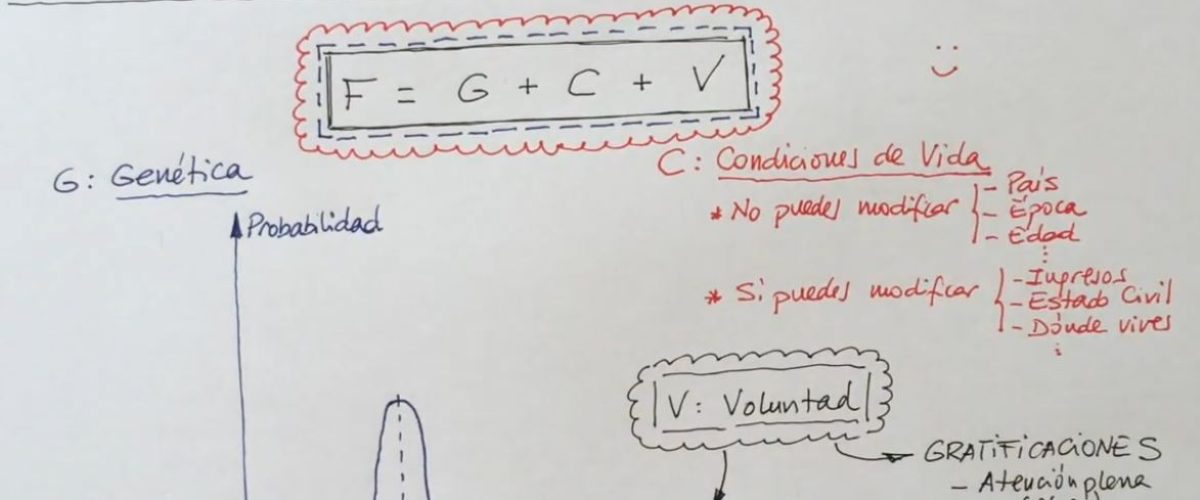 F = G + C + V
G: Genética
Probabilidad
C: Condiciones de Vida
* No puedes modificar
- País
- Época
- Edad
* Si puedes modificar
- Ingresos
- Estado Civil
- Dónde vives
V: Voluntad
GRATIFICACIONES
- Atención plena